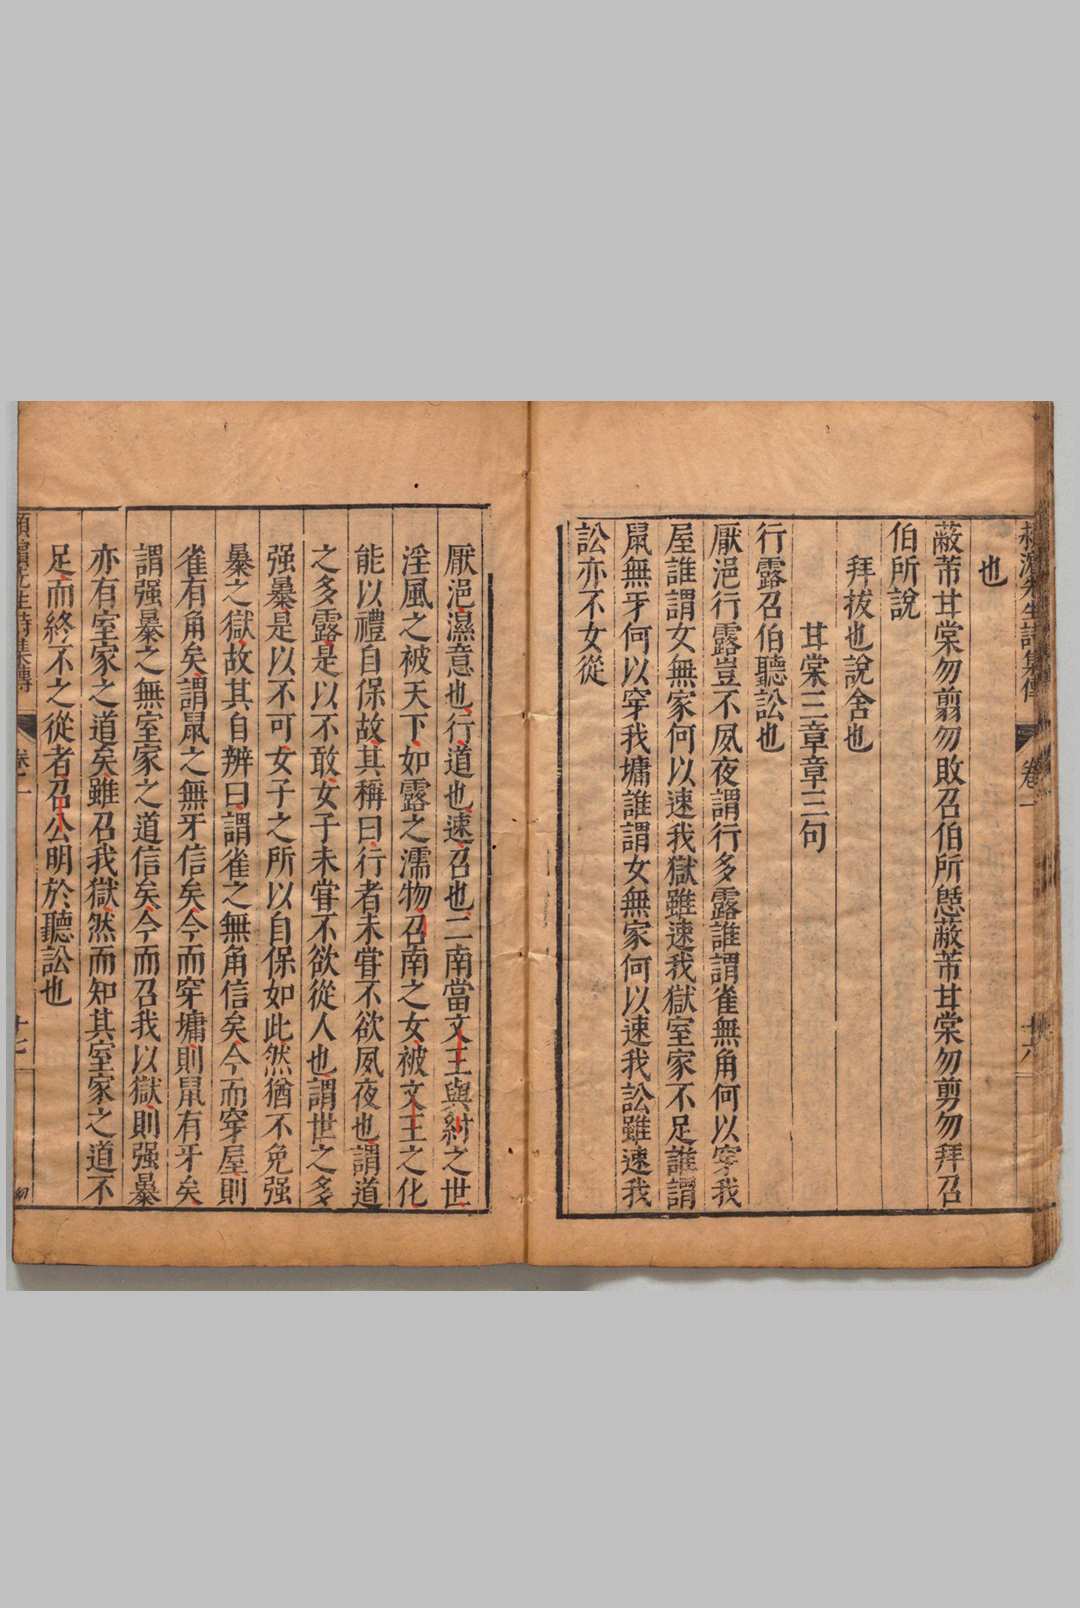 潁濱先生詩集傳 卷一 十六
也
蔽芾甘棠勿翦勿敗召伯所憩蔽芾甘棠勿剪勿拜召
伯所說
拜拔也說舍也
甘棠三章章三句
行露召伯聽訟也
厭浥行露豈不夙夜謂行多露誰謂雀無角何以穿我
屋誰謂女無家何以速我獄雖速我獄室家不足誰謂
鼠無牙何以穿我墉誰謂女無家何以速我訟雖速我
訟亦不女從
厭浥濕意也行道也速召也二南當文王與紂之世
淫風之被天下如露之濡物召南之女被文王之化
能以禮自保故其稱曰行者未甞不欲夙夜也謂道
之多露是以不敢女子未甞不欲從人也謂世之多
强暴是以不可女子之所以自保如此然猶不免强
暴之獄故其自辨曰謂雀之無角信矣今而穿屋則
雀有角矣謂鼠之無牙信矣今而穿墉則鼠有牙矣
謂强暴之無室家之道信矣今而召我以獄則强暴
亦有室家之道矣雖召我獄然而知其室家之道不
足而終不之從者召公明於聽訟也
潁濱先生詩集傳 卷一 十七